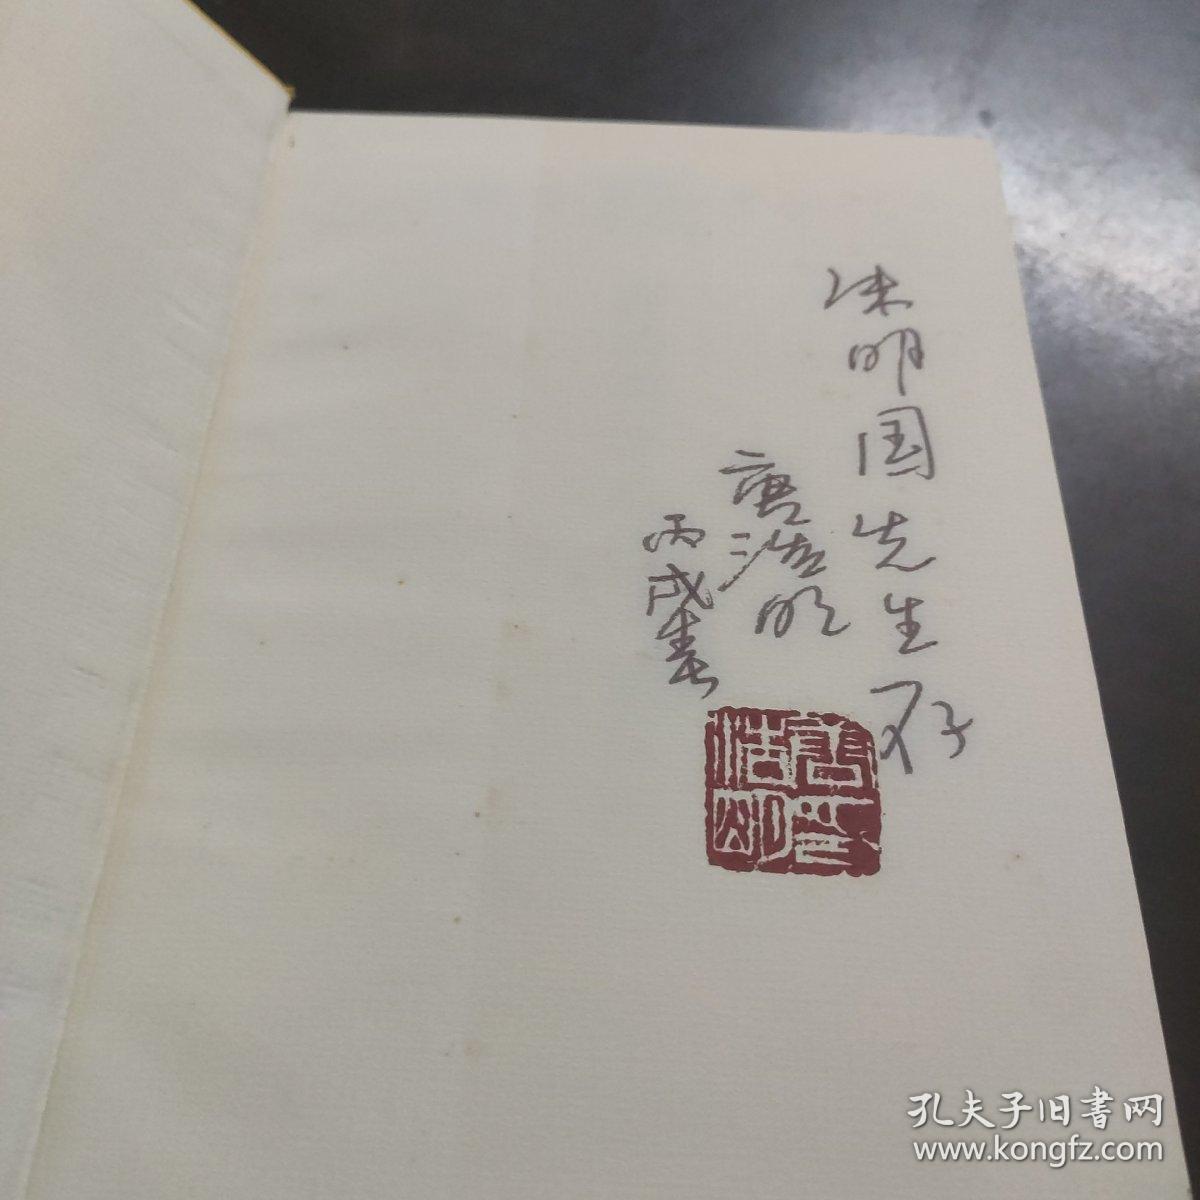 朱明国先生存
唐浩明
丙戌春
唐浩明印
孔夫子旧书网
www.kongfz.com